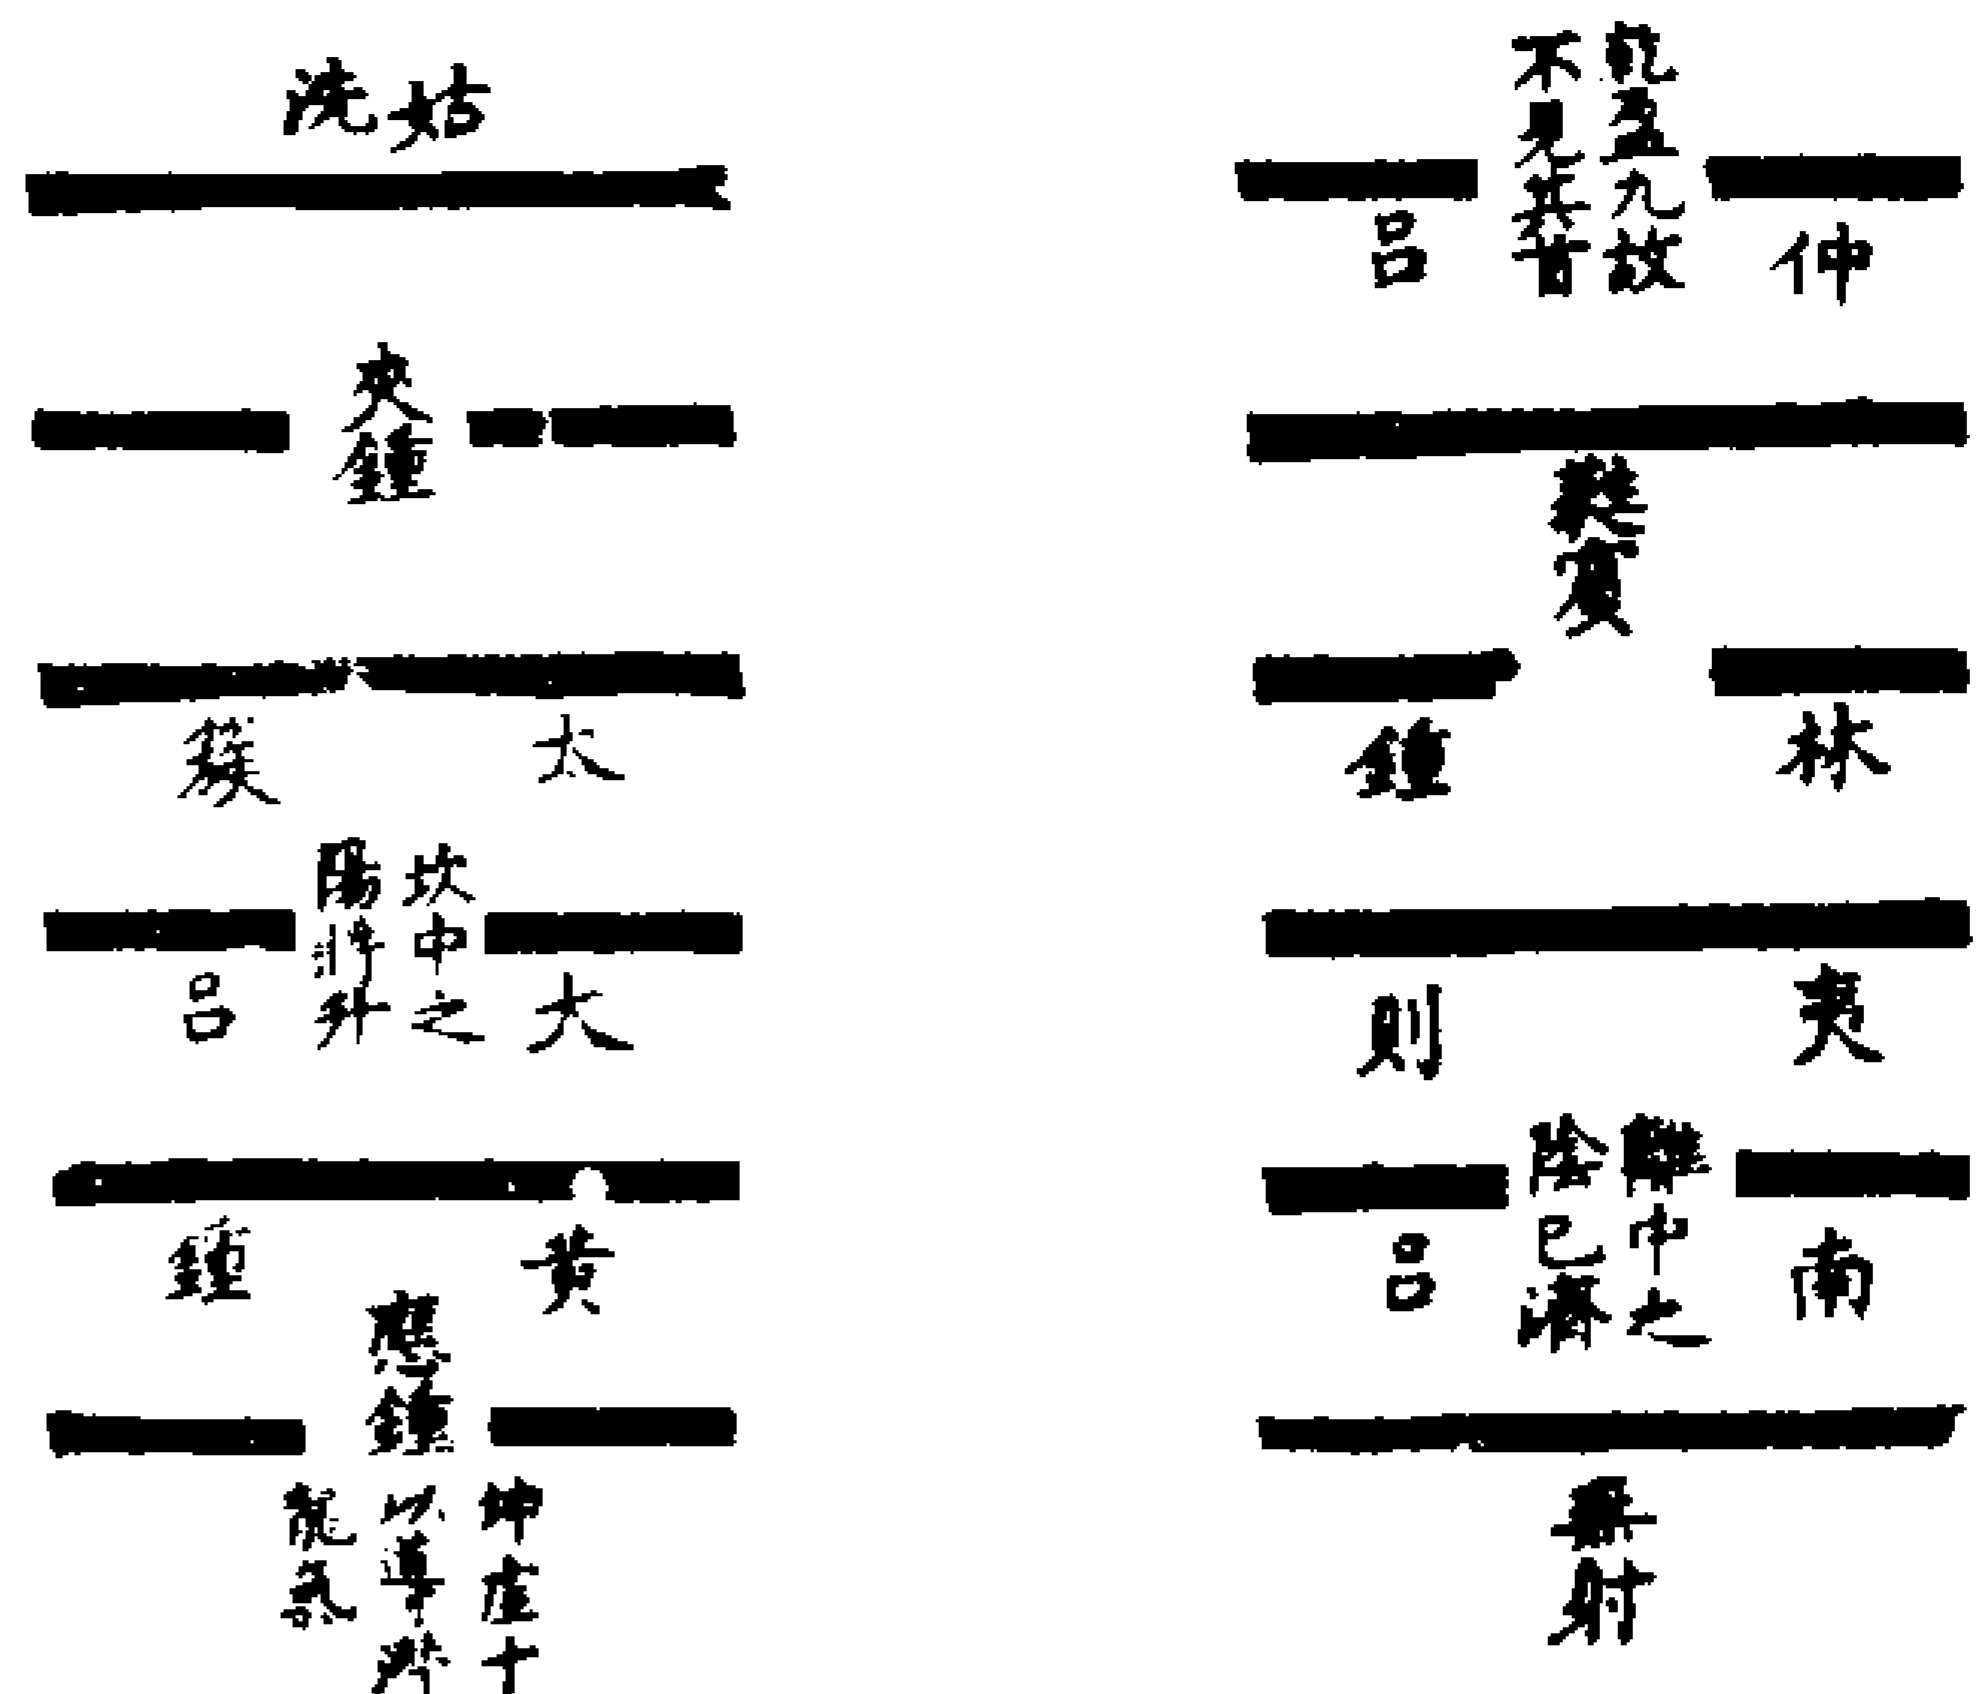 仲呂
乾盈九故
不見其首
蕤賓
林鍾
夷則
南呂
離中之
陰已濟
無射
姑洗
夾鍾
太簇
大呂
坎中之
陽將升
黃鍾
應鍾
坤虛十
以導潛
龍氣